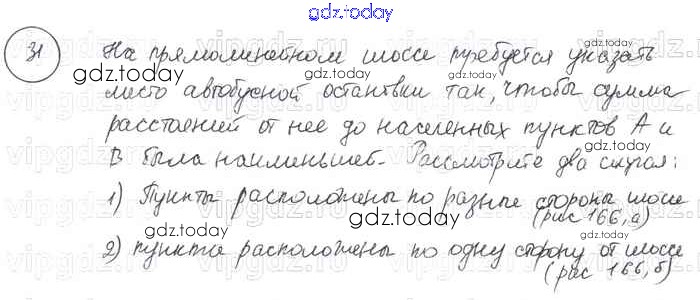 gdz.today
31 На прямолинейном шоссе требуется указать
gdz.today
место автобусной остановки так, чтобы сумма
gdz.today
расстояний от нее до населенных пунктов А и
gdz.today
В была наименьшей. Рассмотрите два случая:
1) Пункты расположены по разные стороны шоссе
gdz.today
(рис 166, а)
2) пункты расположены по одну сторону от шоссе
gdz.today
(рис 166, б)